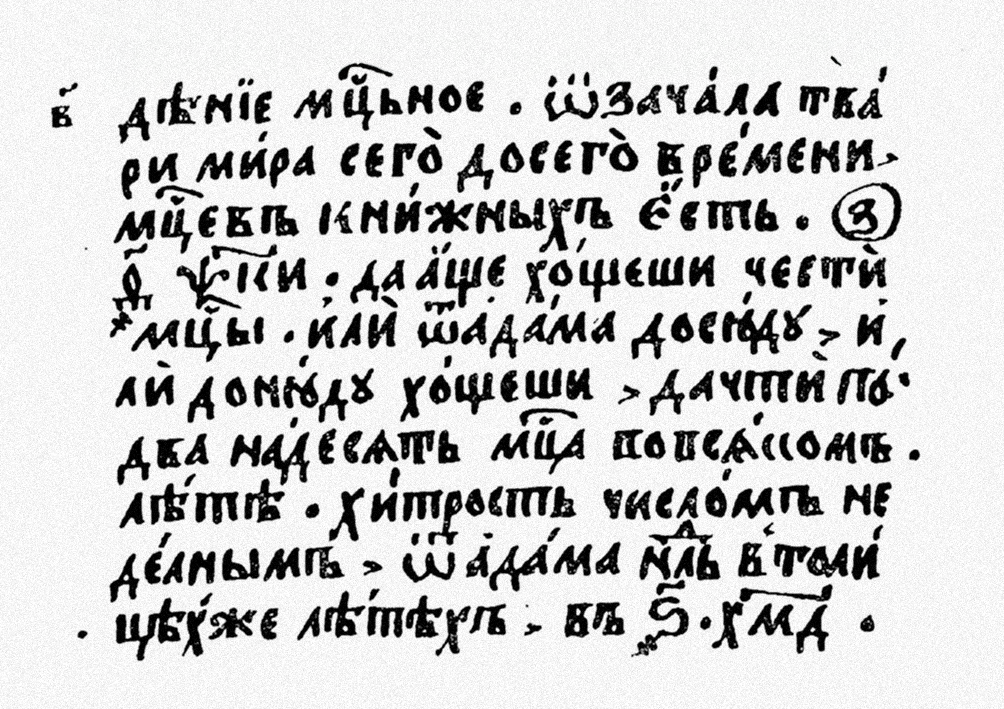 в҃ дѣнїе мц҃ьное . ѿзача́ла тва́
ри ми́ра сего̀ досего̀ вре́мени ,
мц҃евъ кни́жныхъ є҆́сть . З
ѱ҃ки . да а҆́ще хо́щеши честѝ
мц҃ы . и҆лѝ ѿада́ма досю́дꙋ , и҆
лѝ доню́дꙋ хо́щеши , да чтѝ по
два на́десѧть мц҃а повсѧ́комъ .
лѣ́тѣ . хи́трость число́мъ не
де́лнымъ , ѿада́ма нл҃ь в толи́
цѣ́хже лѣ́тѣхъ , въ ѕ҃ . хм҃д .